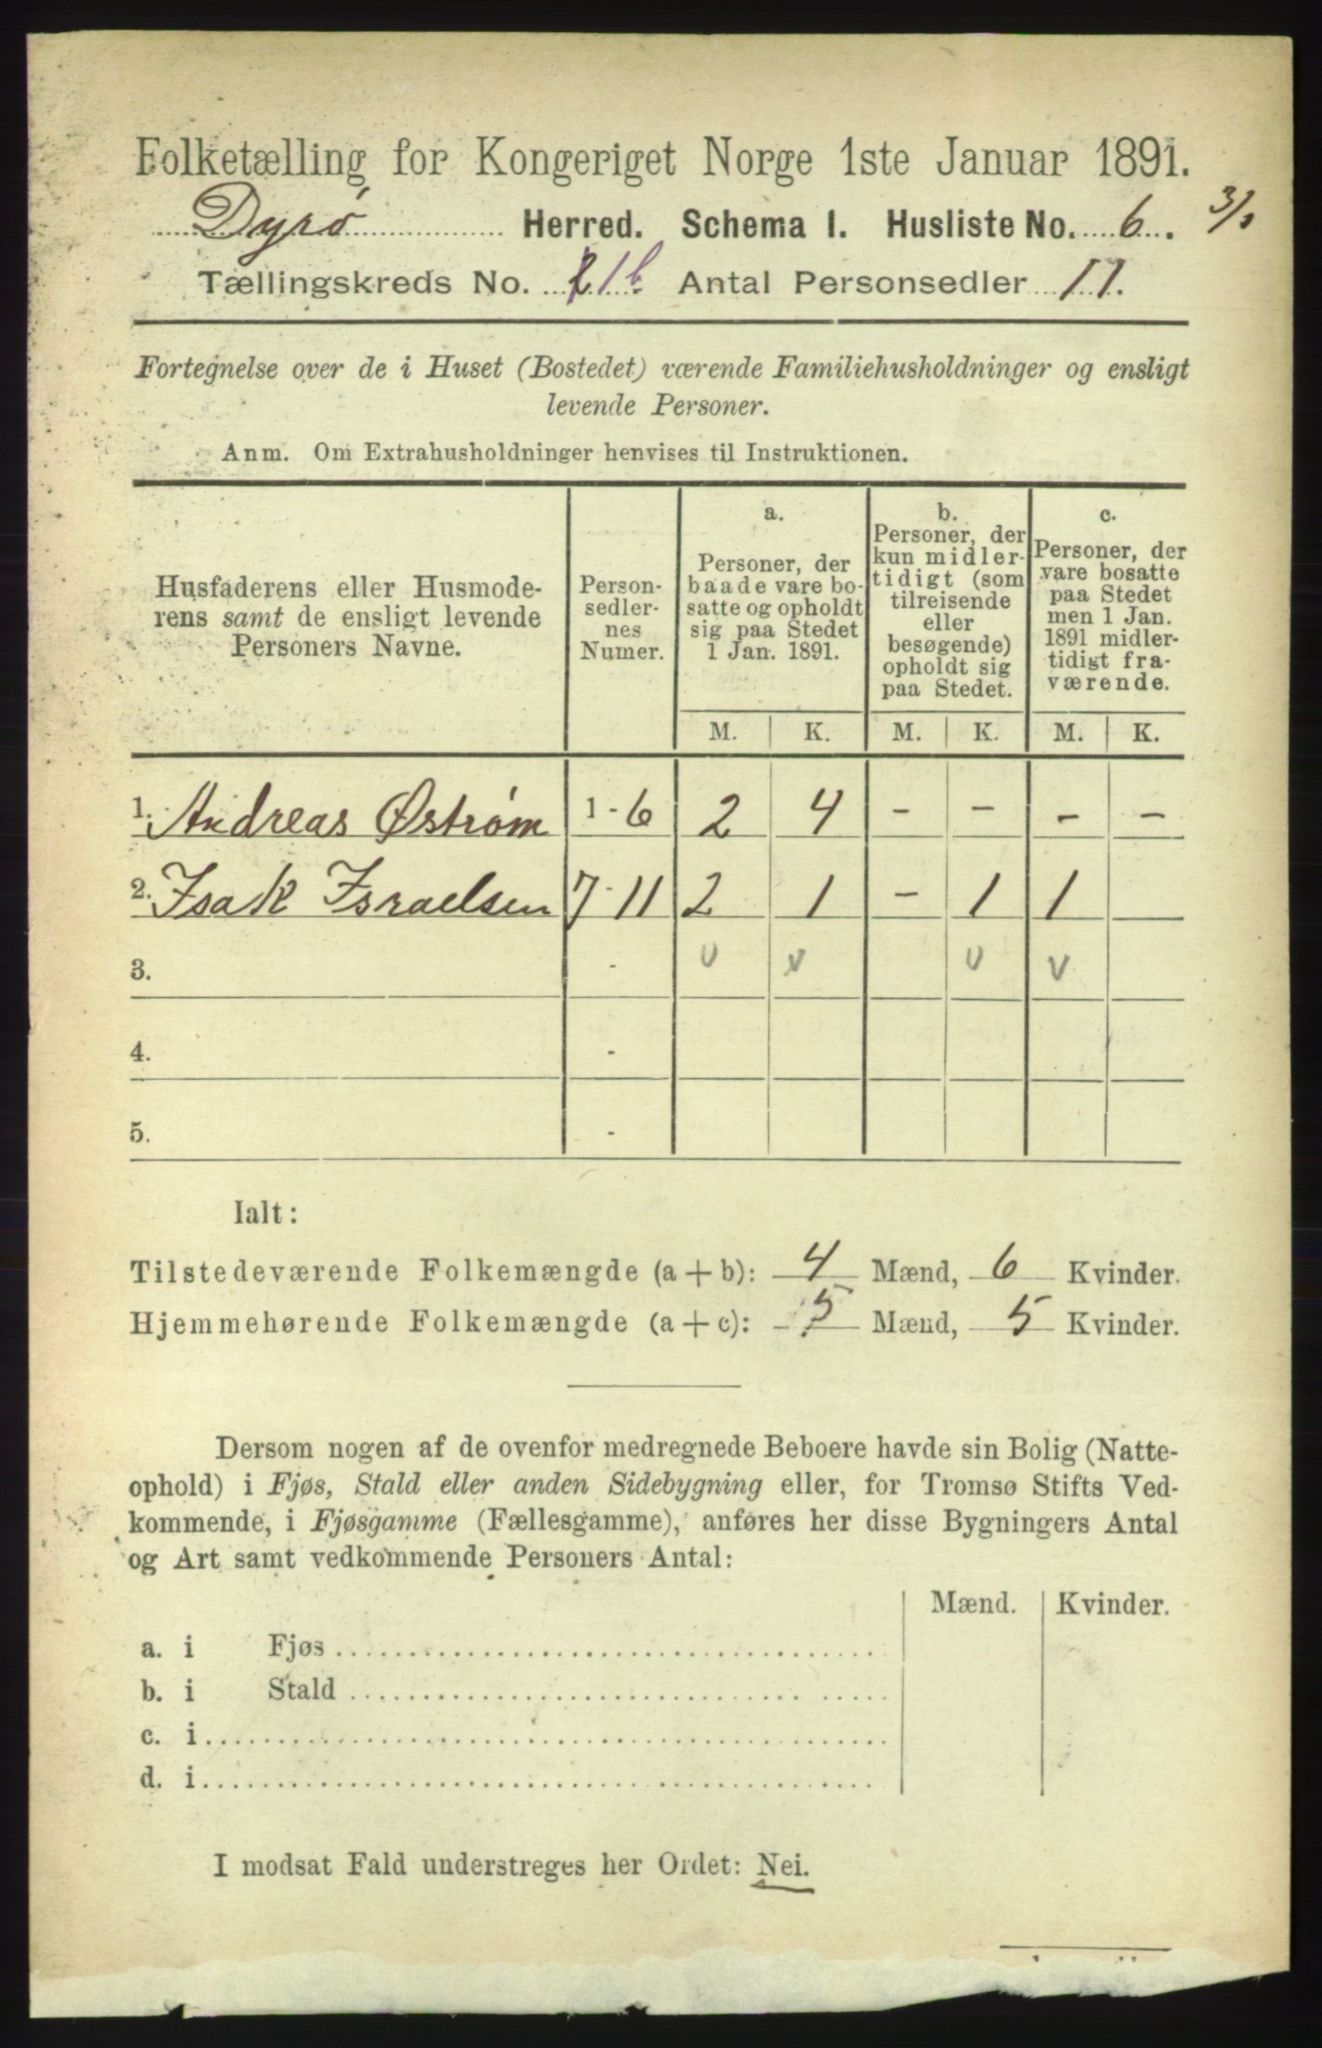 Folketælling for Kongeriget Norge 1ste Januar 1891.
Dyrø Herred. Schema I. Husliste No. 6. 3/3
Tællingskreds No. 1b Antal Personsedler 11.
Fortegnelse over de i Huset (Bostedet) værende Familiehusholdninger og ensligt
levende Personer.
Anm. Om Extrahusholdninger henvises til Instruktionen.
Husfaderens eller Husmode-
rens samt de ensligt levende
Personers Navne.
Person-
sedler-
nes
Numer.
a.
Personer, der
baade vare bo-
satte og opholdt
sig paa Stedet
1 Jan. 1891.
b.
Personer, der
kun midler-
tidigt (som
tilreisende
eller
besøgende)
opholdt sig
paa Stedet.
c.
Personer, der
vare bosatte
paa Stedet
men 1 Jan.
1891 midler-
tidigt fra-
værende.
M. K. M. K. M. K.
1. Andreas Østrøm 1-6 2 4 - - - -
2. Isak Israelsen 7-11 2 1 - 1 1
3. - v v v v
4. -
5. -
Ialt:
Tilstedeværende Folkemængde (a + b): 4 Mænd, 6 Kvinder.
Hjemmehørende Folkemængde (a + c): 5 Mænd, 5 Kvinder.
Dersom nogen af de ovenfor medregnede Beboere havde sin Bolig (Natte-
ophold) i Fjøs, Stald eller anden Sidebygning eller, for Tromsø Stifts Ved-
kommende, i Fjøsgamme (Fællesgamme), anføres her disse Bygningers Antal
og Art samt vedkommende Personers Antal:
Mænd. Kvinder.
a. i Fjøs
b. i Stald
c. i
d. i
I modsat Fald understreges her Ordet: Nei.